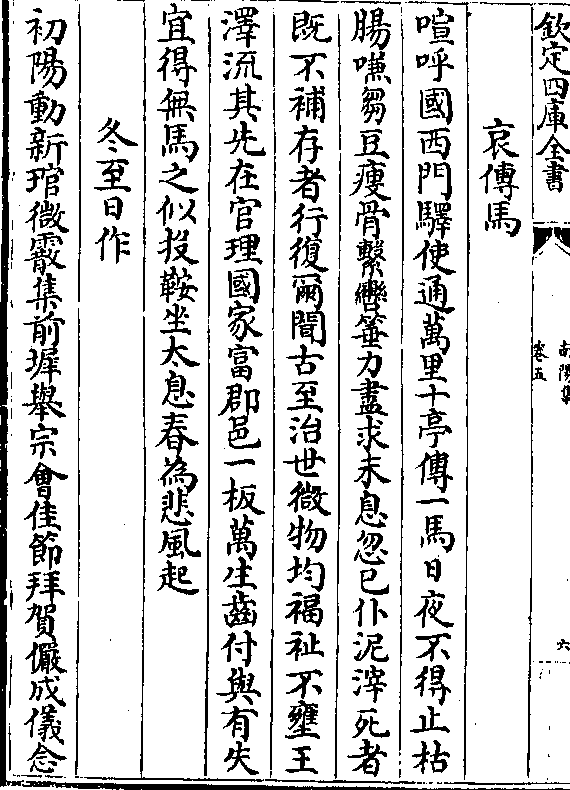 欽定四庫全書
南陽集
卷五
六
哀傳馬
喧呼國西門驛使通萬里十亭傳一馬日夜不得止枯
腸嗛芻豆瘦骨繫轡箠力盡求未息忽已仆泥滓死者
既不補存者行復爾聞古至治世微物均福祉不壅王
澤流其先在官理國家富郡邑一板萬生齒付與有失
宜得無馬之似投鞍坐太息春為悲風起
冬至日作
初陽動新琯微霰集前墀舉宗會佳節拜賀儼成儀念